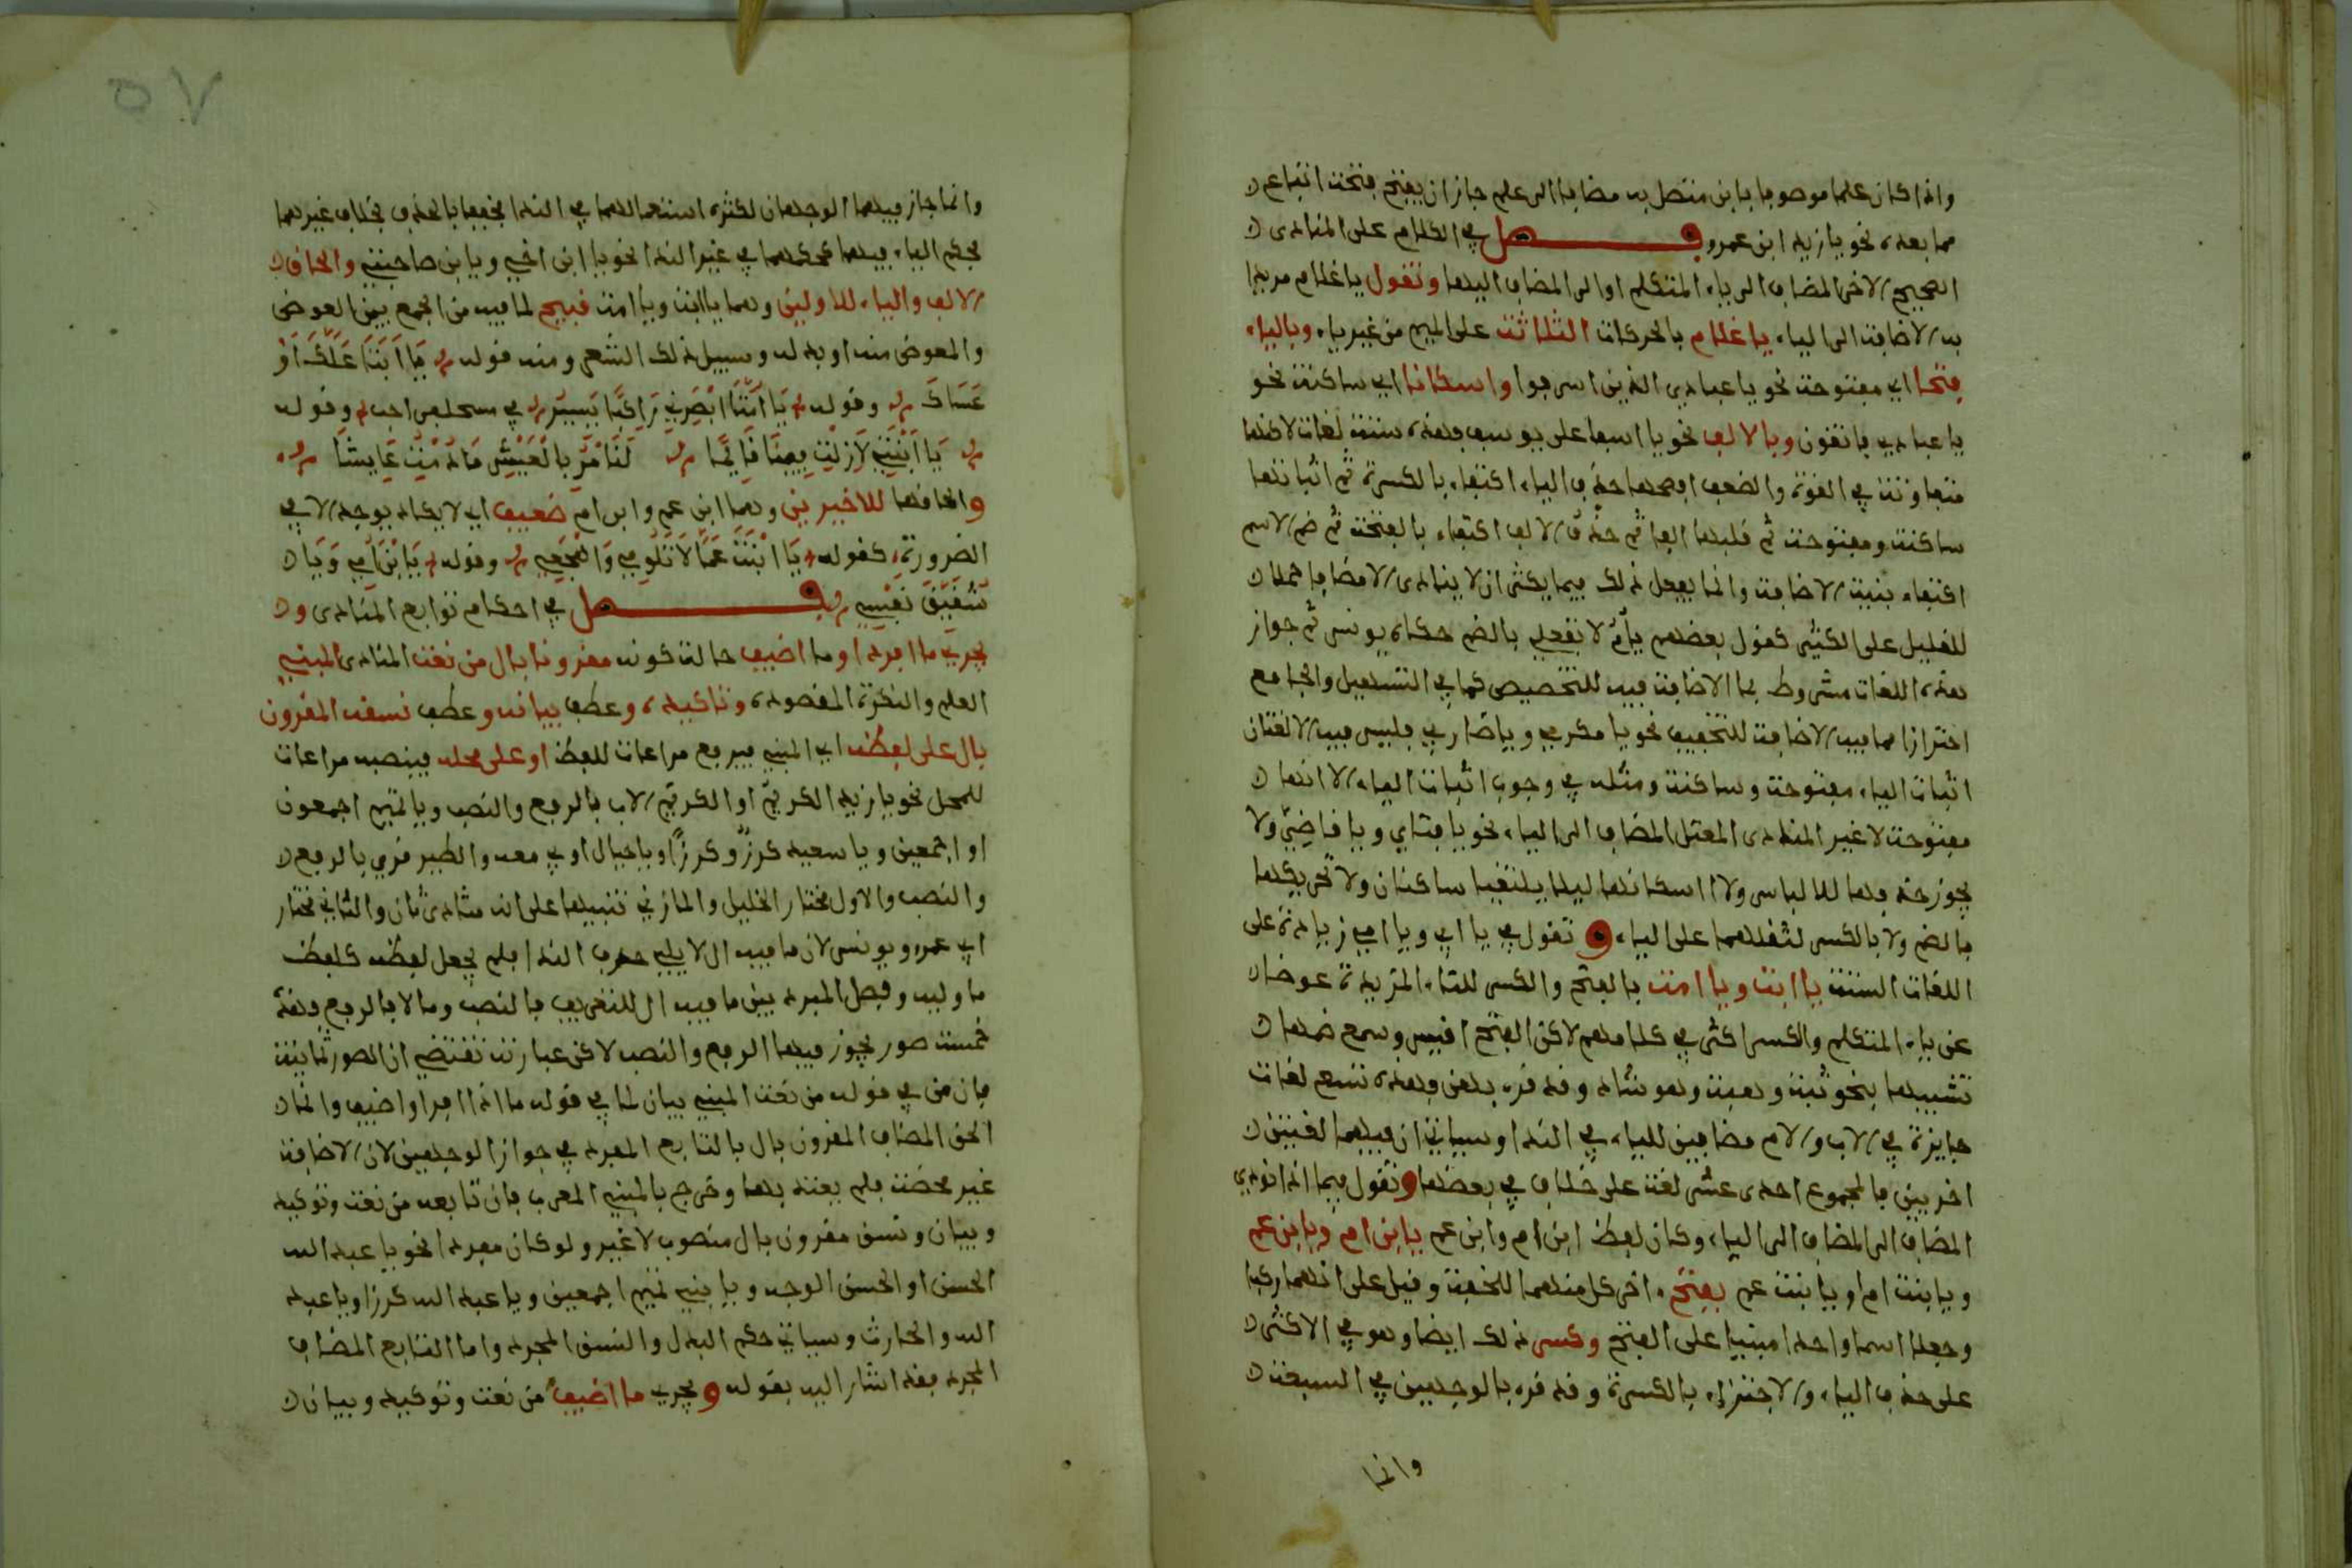 واذا كان علما موصوفا بابن متصل به مضافا الى علم جاز ان يفتح فتحة اتباع
مما بعده نحو يا زيد ابن عمرو فصل في الكلام على المنادى
الصحيح الاخر المضاف الى ياء المتكلم او الى المضاف اليها وتقول يا غلام مريدا
به الاضافة الى الياء يا غلام بالحركات الثلاثة على الميم من غير ياء وبالياء
فتحا اي مفتوحة نحو يا عبادي الذين اسرفوا واسكانا اي ساكنة نحو
يا عبادي فاتقون وبالالف نحو يا اسفا على يوسف فهذه ستة لغات لاكنها
متفاوتة في القوة والضعف افصحها حذف الياء اكتفاء بالكسرة ثم اثباتها
ساكنة ومفتوحة ثم قلبها الفا ثم حذف الالف اكتفاء بالفتحة ثم ضم الاسم
اكتفاء بنية الاضافة وانما يفعل ذلك فيما يكثر ان لا ينادى الا مضافا حملا
للقليل على الكثير كقول بعضهم يا أم لا تفعلي بالضم حكاه يونس ثم جواز
هذه اللغات مشروط بما الاضافة فيه للتخصيص كما في التسهيل والجامع
احترازا مما فيه الاضافة للتخفيف نحو يا مكرمي ويا ضاربي فليس فيه الا لغتان
اثبات الياء مفتوحة وساكنة ومثله في وجوب اثبات الياء الا انها
مفتوحة لا غير المنادى المعتل المضاف الى الياء نحو يا فتاي ويا قاضيّ ولا
يجوز حذفها للالباس ولا اسكانها ليلا يلتقيا ساكنان ولا تحريكها
بالضم ولا بالكسر لثقلهما على الياء و تقول في يا ابي ويا امي زيادة على
اللغات الستة يا ابت ويا امت بالفتح والكسر للتاء المزيدة عوضا
عن ياء المتكلم والكسر اكثر في كلامهم لاكن الفتح اقيس وسمع ضمها
تشبيها بنحو ثبة وهبة وهو شاذ وقد قرء بهن فهذه تسع لغات
جايزة في الاب والام مضافين للياء في الندا وسياتي ان فيهما لغتين
اخريين فالمجموع احدى عشر لغة على خلاف في بعضها وتقول فيما اذا نودي
المضاف الى المضاف الى الياء وكان لفظ ابن ام وابن عم يا بن ام ويا بن عم
ويا بنت ام ويا بنت عم بفتح اخر كل منهما للخفة وقيل على انهما ركبا
وجعلا اسما واحدا مبنيا على الفتح وكسر ذلك ايضا وهو في الاكثر
على حذف الياء والاجتزاء بالكسرة وقد قرء بالوجهين في السبعة
وانما
وانما جاز فيهما الوجهان لكثرة استعمالهما في الندا فخففا بالحذف بخلاف غيرهما
فحكم الياء فيهما كحكمها في غير الندا نحو يا ابن اخي ويا بن صاحبتي والحاق
الالف والياء للاولين وهما يا ابت ويا امت قبيح لما فيه من الجمع بين العوض
والمعوض منه او بدله وسبيل ذلك الشعر ومنه قوله يَا أَبَتَا عَلَّكَ أَوْ
عَسَاكَ وقوله يَا أُمَّتَا أَبْصَرَنِي رَاكِبٌ يَسِيرُ في مسحنفر لاحب وقوله
يَا أَبَتِي لَا زِلْتَ فِينَا فَإِنَّمَا لَنَا أَمَلٌ بِالْعَيْشِ مَا دُمْتَ عَايِشَا
والحاقها للاخيرين وهما ابن عم وابن ام ضعيف اي لا يكاد يوجد الا في
الضرورة كقوله يَا ابْنَتَ عَمَّا لَا تَلُومِي وَاهْجَعِي وقوله يَا بْنَ أُمِّي وَيَا
شُقَيِّقَ نَفْسِي فصل في احكام توابع المنادى و
يجري ما افرد او ما اضيف حالة كونه مقرونا بال من نعت المنادى المبني
العلم والنكرة المقصودة وتاكيده وعطف بيانه وعطف نسقه المقرون
بال على لفظه اي المبني فيرفع مراعات للفظ او على محله فينصب مراعات
للمحل نحو يا زيد الكريم او الكريم الاب بالرفع والنصب ويا تميم اجمعون
او اجمعين ويا سعيد كرزٌ وكرزًا ويا جبال اوبي معه والطير قري بالرفع
والنصب والاول مختار الخليل والمازني تنبيها على انه منادى ثان والثاني مختار
ابي عمرو ويونس لان ما فيه ال لا يلي حرف الندا فلم يجعل لفظه كلفظ
ما وليه وفصل المبرد بين ما فيه ال للتعريف فالنصب وما لا فالرفع فهذه
خمسة صور يجوز فيها الرفع والنصب لاكن عبارته تقتضي ان الصور ثمانية
فان من في قوله من نعت المبني بيان لما في قوله ما اذا افرد او اضيف وانما
الحق المضاف المقرون بال بالتابع المفرد في جواز الوجهين لان الاضافة
غير محضة فلم يعتد بها وخرج بالمبني المعرب فان تابعه من نعت وتوكيد
وبيان ونسق مقرون بال منصوب لا غير ولو كان مفردا نحو يا عبد الله
الحسن او الحسن الوجه ويا بني تميم اجمعين ويا عبد الله كرزا ويا عبد
الله والحارث وسياتي حكم البدل والنسق المجرد واما التابع المضاف
المجرد فقد اشار اليه بقوله ويجري ما اضيف من نعت وتوكيد وبيان
٥٧